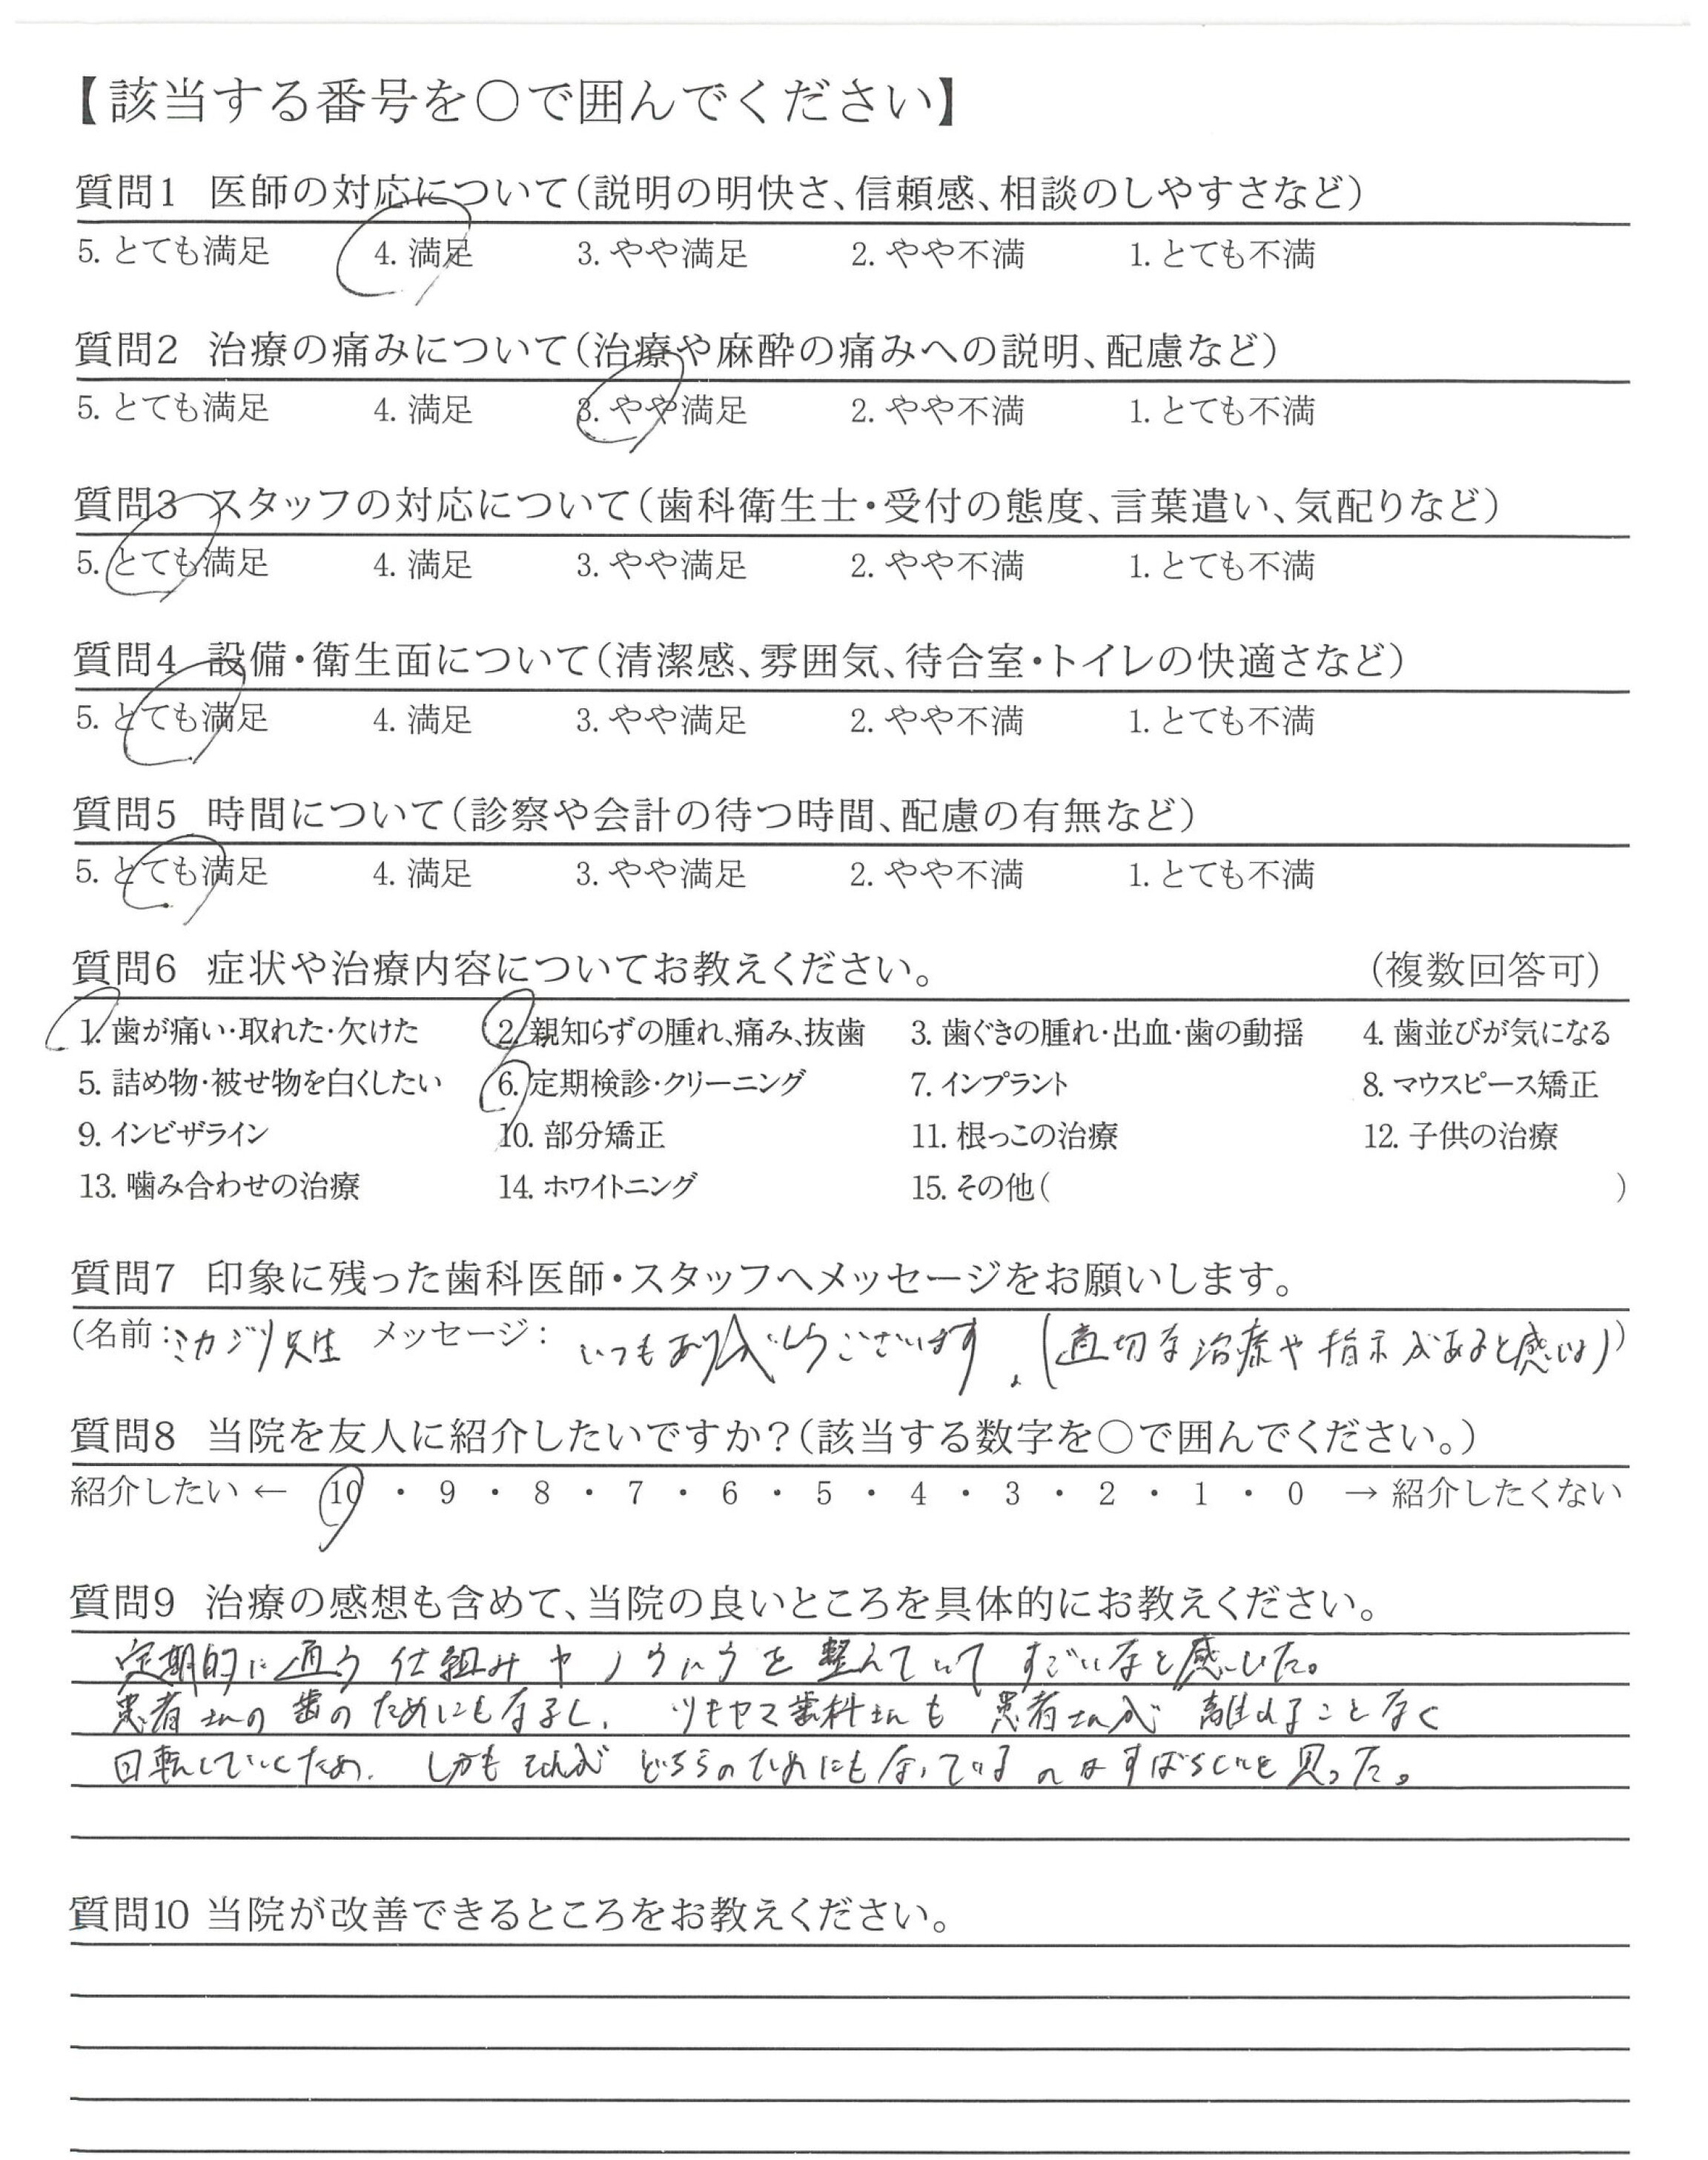 【該当する番号を○で囲んでください】
質問1 医師の対応について（説明の明快さ、信頼感、相談のしやすさなど）
5. とても満足 4. 満足 3. やや満足 2. やや不満 1. とても不満
質問2 治療の痛みについて（治療や麻酔の痛みへの説明、配慮など）
5. とても満足 4. 満足 3. やや満足 2. やや不満 1. とても不満
質問3 スタッフの対応について（歯科衛生士・受付の態度、言葉遣い、気配りなど）
5. とても満足 4. 満足 3. やや満足 2. やや不満 1. とても不満
質問4 設備・衛生面について（清潔感、雰囲気、待合室・トイレの快適さなど）
5. とても満足 4. 満足 3. やや満足 2. やや不満 1. とても不満
質問5 時間について（診察や会計の待つ時間、配慮の有無など）
5. とても満足 4. 満足 3. やや満足 2. やや不満 1. とても不満
質問6 症状や治療内容についてお教えください。 （複数回答可）
1. 歯が痛い・取れた・欠けた 2. 親知らずの腫れ、痛み、抜歯 3. 歯ぐきの腫れ・出血・歯の動揺 4. 歯並びが気になる
5. 詰め物・被せ物を白くしたい 6. 定期検診・クリーニング 7. インプラント 8. マウスピース矯正
9. インビザライン 10. 部分矯正 11. 根っこの治療 12. 子供の治療
13. 噛み合わせの治療 14. ホワイトニング 15. その他（ ）
質問7 印象に残った歯科医師・スタッフへメッセージをお願いします。
（名前：ミカジリ先生 メッセージ： いつもありがとうございます。（適切な治療や指示があると感じる））
質問8 当院を友人に紹介したいですか？（該当する数字を○で囲んでください。）
紹介したい ← 10 ・ 9 ・ 8 ・ 7 ・ 6 ・ 5 ・ 4 ・ 3 ・ 2 ・ 1 ・ 0 → 紹介したくない
質問9 治療の感想も含めて、当院の良いところを具体的にお教えください。
定期的に通う仕組みやノウハウを整えていてすごいなと感じた。
患者さんの歯のためにもなるし、ツモヤマ歯科さんも患者さんが離れることなく
回転していくため、しかもそれがどちらのためにもなっているのはすばらしいと思った。
質問10 当院が改善できるところをお教えください。